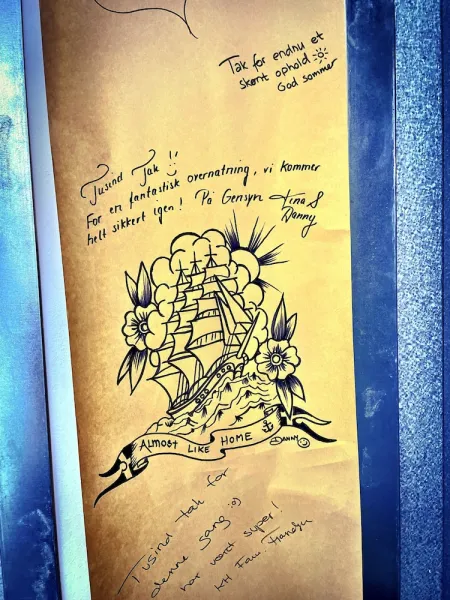 Tak for endnu et
skønt ophold
God sommer
Tusind Tak !!
For en fantastisk overnatning, vi kommer
helt sikkert igen! På Gensyn Tina &
Danny
ALMOST LIKE HOME
DANNY
Tusind tak for
denne gang :o)
har været super!
KH Fam